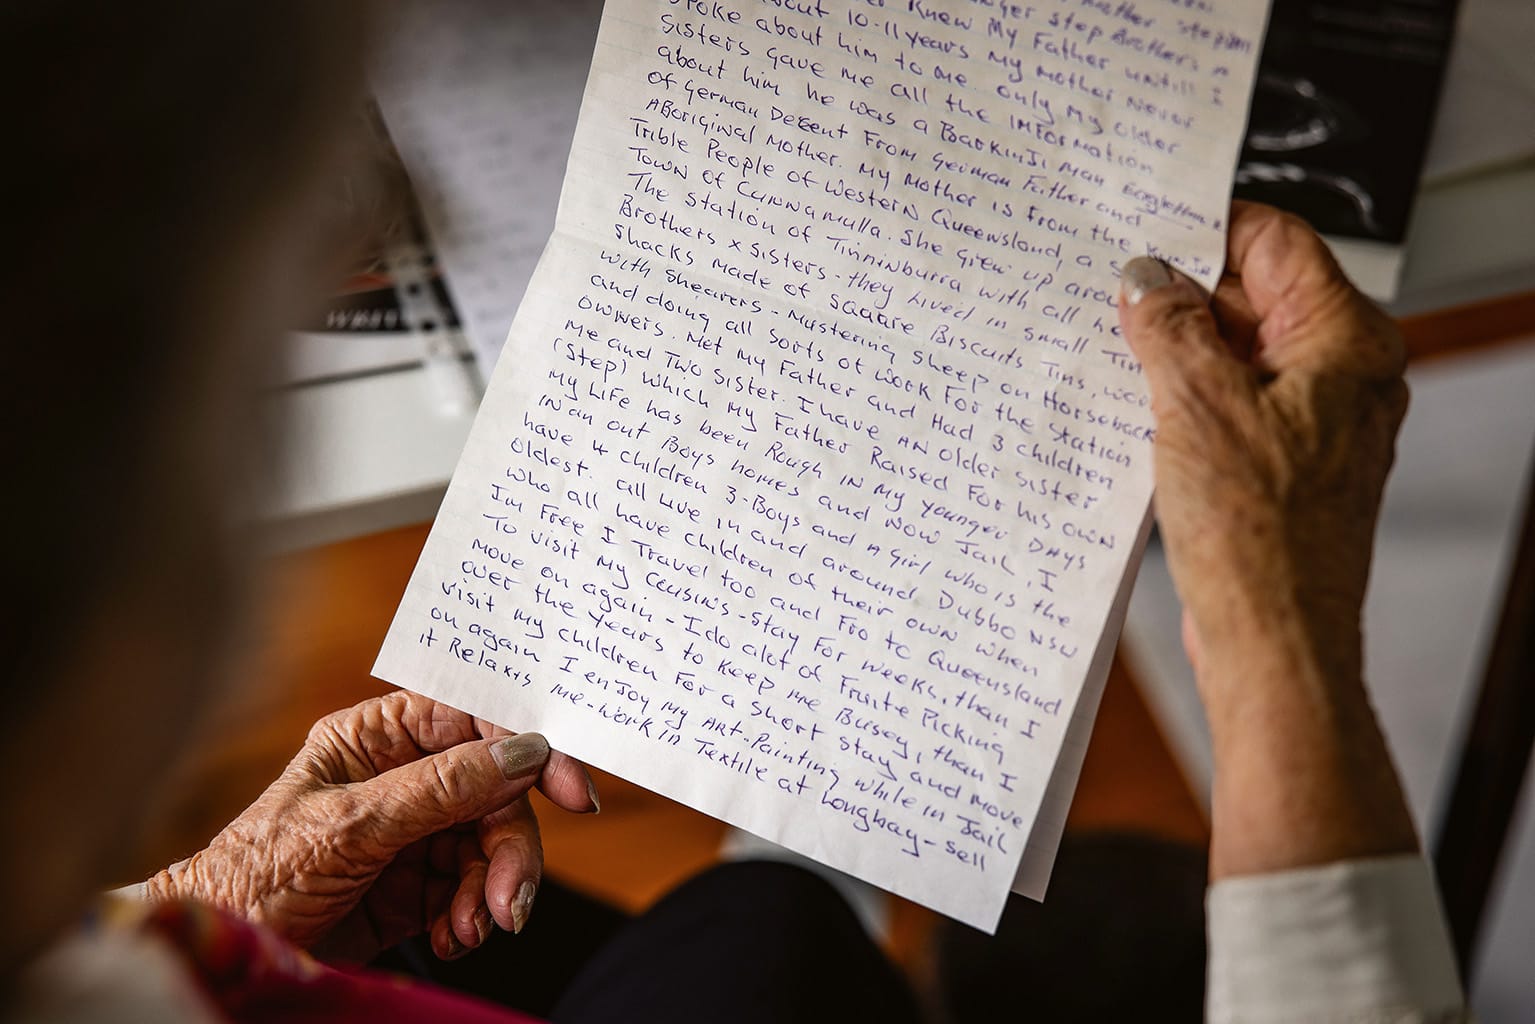 Mother
younger step Brothers x
Knew My Father untill I
10-11 years My Mother Never
spoke about him to me. only My older
Sisters gave me all the information
about him he was a BarkinJi man
of german Decent From german Father and
ABoriginal Mother. My Mother is From the KunJa
Trible People of western Queensland, a s
Town of Cunnamulla. She grew up arou
The station of Tinninburra with all he
Brothers x sisters - they Lived in small Tin
shacks made of square Biscuits Tins, wor
with shearers - Mustering sheep on Horseback
and doing all sorts of work For the station
owners. Met my Father and Had 3 children
me and Two sister. I have an older sister
(step) which my Father Raised For his own
My Life has been Rough in my younger Days
in an out Boys homes and now Jail, I
have 4 children 3-Boys and a girl who is the
oldest. all live in and around Dubbo NSW
who all have children of their own when
Im Free I Travel too and Fro to Queensland
To visit my cousins - stay For weeks, than I
move on again - I do alot of Fruite Picking
over the years to keep me Busey, than I
visit my children For a short stay and move
on again I enjoy my ART-Painting while in Jail
it Relaxes me - work in Textile at Longbay - sell